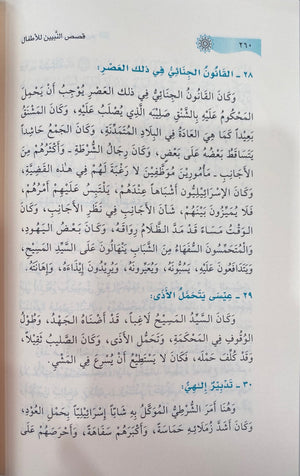 ٢٦٠
قصص النبيين للأطفال
٢٨ - القَانُونُ الجِنَائِيُّ فِي ذلِكَ العَصْرِ:
وَكَانَ القَانُونُ الجِنَائِيُّ فِي ذلِكَ العَصْرِ يُوجِبُ أَنْ يَحْمِلَ
المَحْكُومُ عَلَيْهِ بِالشَّنْقِ صَلِيبَهُ الَّذِي يُصْلَبُ عَلَيْهِ، وَكَانَ المَشْنَقُ
بَعِيداً كَمَا هِيَ العَادَةُ فِي البِلَادِ المُتَمَدِّنَةِ، وَكَانَ الجَمْعُ حَاشِداً
يَتَسَاقَطُ بَعْضُهُ عَلَى بَعْضٍ، وَكَانَ رِجَالُ الشُّرْطَةِ - وَأَكْثَرُهُمْ مِنَ
الأَجَانِبِ - مَأْمُورِينَ مُوَظَّفِينَ لَا رَغْبَةَ لَهُمْ فِي هذِهِ القَضِيَّةِ،
وَكَانَ الإِسْرَائِيلِيُّونَ أَشْبَاهاً عِنْدَهُمْ، يَلْتَبِسُ عَلَيْهِمْ أَمْرُهُمْ،
فَلَا يُمَيِّزُونَ بَيْنَهُمْ، شَأْنَ الأَجَانِبِ فِي نَظَرِ الأَجَانِبِ، وَكَانَ
الوَقْتُ مَسَاءً قَدْ مَدَّ الظَّلَامُ رُوَاقَهُ، وَكَانَ بَعْضُ اليَهُودِ،
وَالمُتَحَمِّسُونَ السُّفَهَاءُ مِنَ الشَّبَابِ يَنْهَالُونَ عَلَى السَّيِّدِ المَسِيحِ،
وَيَتَدَافَعُونَ عَلَيْهِ، يَسُبُّونَهُ، وَيُعَيِّرُونَهُ، وَيُرِيدُونَ إِيذَاءَهُ، وَإِهَانَتَهُ.
٢٩ - عِيسَى يَتَحَمَّلُ الأَذَى:
وَكَانَ السَّيِّدُ المَسِيحُ لَاغِباً، قَدْ أَضْنَاهُ الجَهْدُ، وَطُولُ
الوُقُوفِ فِي المَحْكَمَةِ، وَتَحَمُّلُ الأَذَى، وَكَانَ الصَّلِيبُ ثَقِيلاً،
وَقَدْ كُلِّفَ حَمْلَهُ، فَكَانَ لَا يَسْتَطِيعُ أَنْ يُسْرِعَ فِي المَشْيِ.
٣٠ - تَدْبِيرٌ إِلهِيٌّ:
وَهُنَا أَمَرَ الشُّرْطِيُّ المُوَكَّلُ بِهِ شَابّاً إِسْرَائِيلِيّاً بِحَمْلِ العُودِ،
وَكَانَ أَشَدَّ زُمَلَائِهِ حَمَاسَةً، وَأَكْبَرَهُمْ سَفَاهَةً، وَأَحْرَصَهُمْ عَلَى